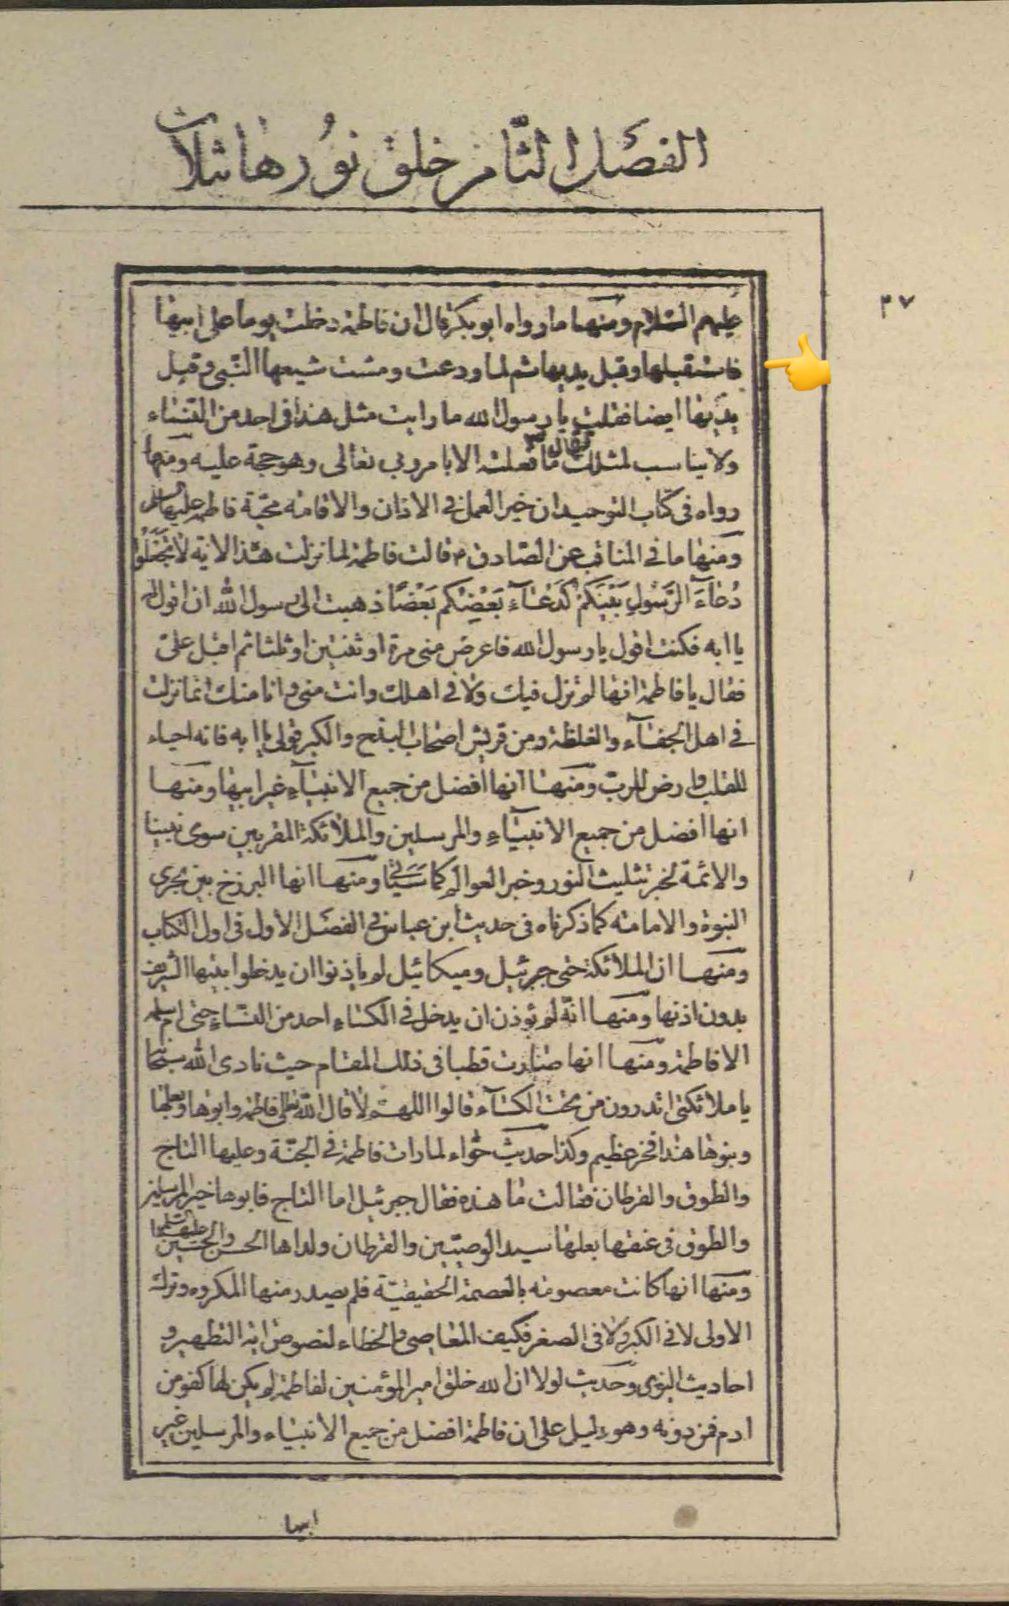 الفصل الثامن خلق نورها ثلاث
٣٧
عليهم السلام ومنها ما رواه ابو بكر قال ان فاطمة دخلت يوما على ابيها
فاستقبلها وقبل يديها ثم لما ودعت ومشت شيعها النبى و قبل
يديها ايضا فقلت يا رسول الله ما رايت مثل هذا فى احد من النساء
ولا يناسب لمثلك فقال ص ما فعلته الا بامر ربى تعالى وهو حجة عليه ومنها
رواه فى كتاب التوحيد ان خير العمل فى الاذان والاقامة محبّة فاطمة عليها السلام
ومنها ما فى المناقب عن الصادق ع قالت فاطمة لما نزلت هذا الاية لا تَجْعَلُوا
دُعٰاءَ الرَّسُولِ بَيْنَكُمْ كَدُعٰاءِ بَعْضِكُم بَعْضًا ذهبت الى رسول الله ان اقول له
يا ابه فكنت اقول يا رسول الله فاعرض منى مرة او ثنتين او ثلثا ثم اقبل علىّ
فقال يا فاطمة انها لم تنزل فيك ولا فى اهلك وانت منى و انا منك انما نزلت
فى اهل الجفاء والغلظة ومن قريش اصحاب البذح والكبر قولى يا ابه فانه احياء
للقلب و ارض للرب ومنها انها افضل من جميع الانبياء غير ابيها ومنها
انها افضل من جميع الانبياء والمرسلين والملائكة المقربين سوى نبينا
والائمة لخبر تثليث النور وخبر العوالم كما سَيَأتى ومنها انها البرزخ بين مجرى
النبوة والامامة كما ذكرناه فى حديث ابن عباس فى الفصل الاول فى اول الكتاب
ومنها ان الملائكة حتى جبرئيل وميكائيل لم ياذنوا ان يدخلوا بيتها الشريف
بدون اذنها ومنها انّه لم يؤذن ان يدخل فى الكساء احد من النساء حتى ام سلمه
الا فاطمة ومنها انها صارت قطبا فى ذلك المقام حيث نادى الله سبحانه
يا ملائكتى اتدرون من تحت الكساء قالوا اللهم لا قال الله تعالى فاطمة وابوها وبعلها
وبنوها هذا فخر عظيم وكذا حديث حواء لما رات فاطمة فى الجنّة وعليها التاج
والطوق والقرطان فقالت ما هذه فقال جبرئيل اما التاج فابوها خير المرسلين
والطوق فى عنقها بعلها سيد الوصيّين والقرطان ولداها الحسن والحسين عليهما السلام
ومنها انها كانت معصومة بالعصمة الحقيقيّة فلم يصدر منها المكروه وترك
الاولى لا فى الكبر و لا فى الصغر فكيف المعاصى و الخطاء لنصوص اية التطهير و
احاديث النبوى وحديث لولا ان الله خلق امير المؤمنين لفاطمة لم يكن لها كفو من
ادم فمن دونه وهو دليل على ان فاطمة افضل من جميع الانبياء والمرسلين غير
ابيها